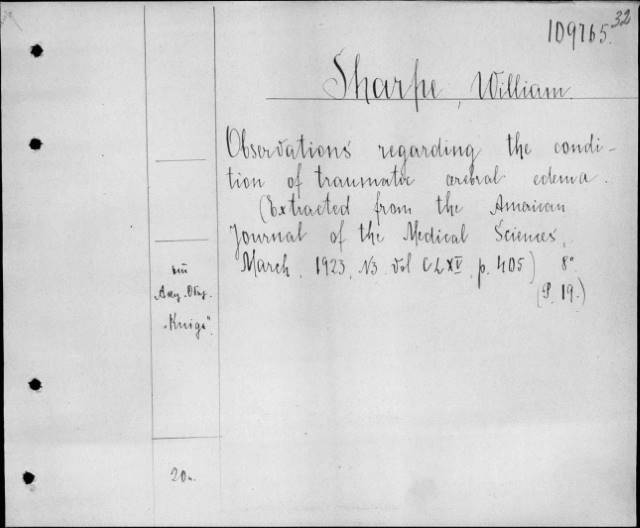 109765. 32
Sharpe, William.
Observations regarding the condi-
tion of traumatic cerebral edema.
(Extracted from the American
Journal of the Medical Sciences,
March, 1923, N3 Vol CLXV, p. 405) 8°
(P. 19.)
"Knigo".
20.